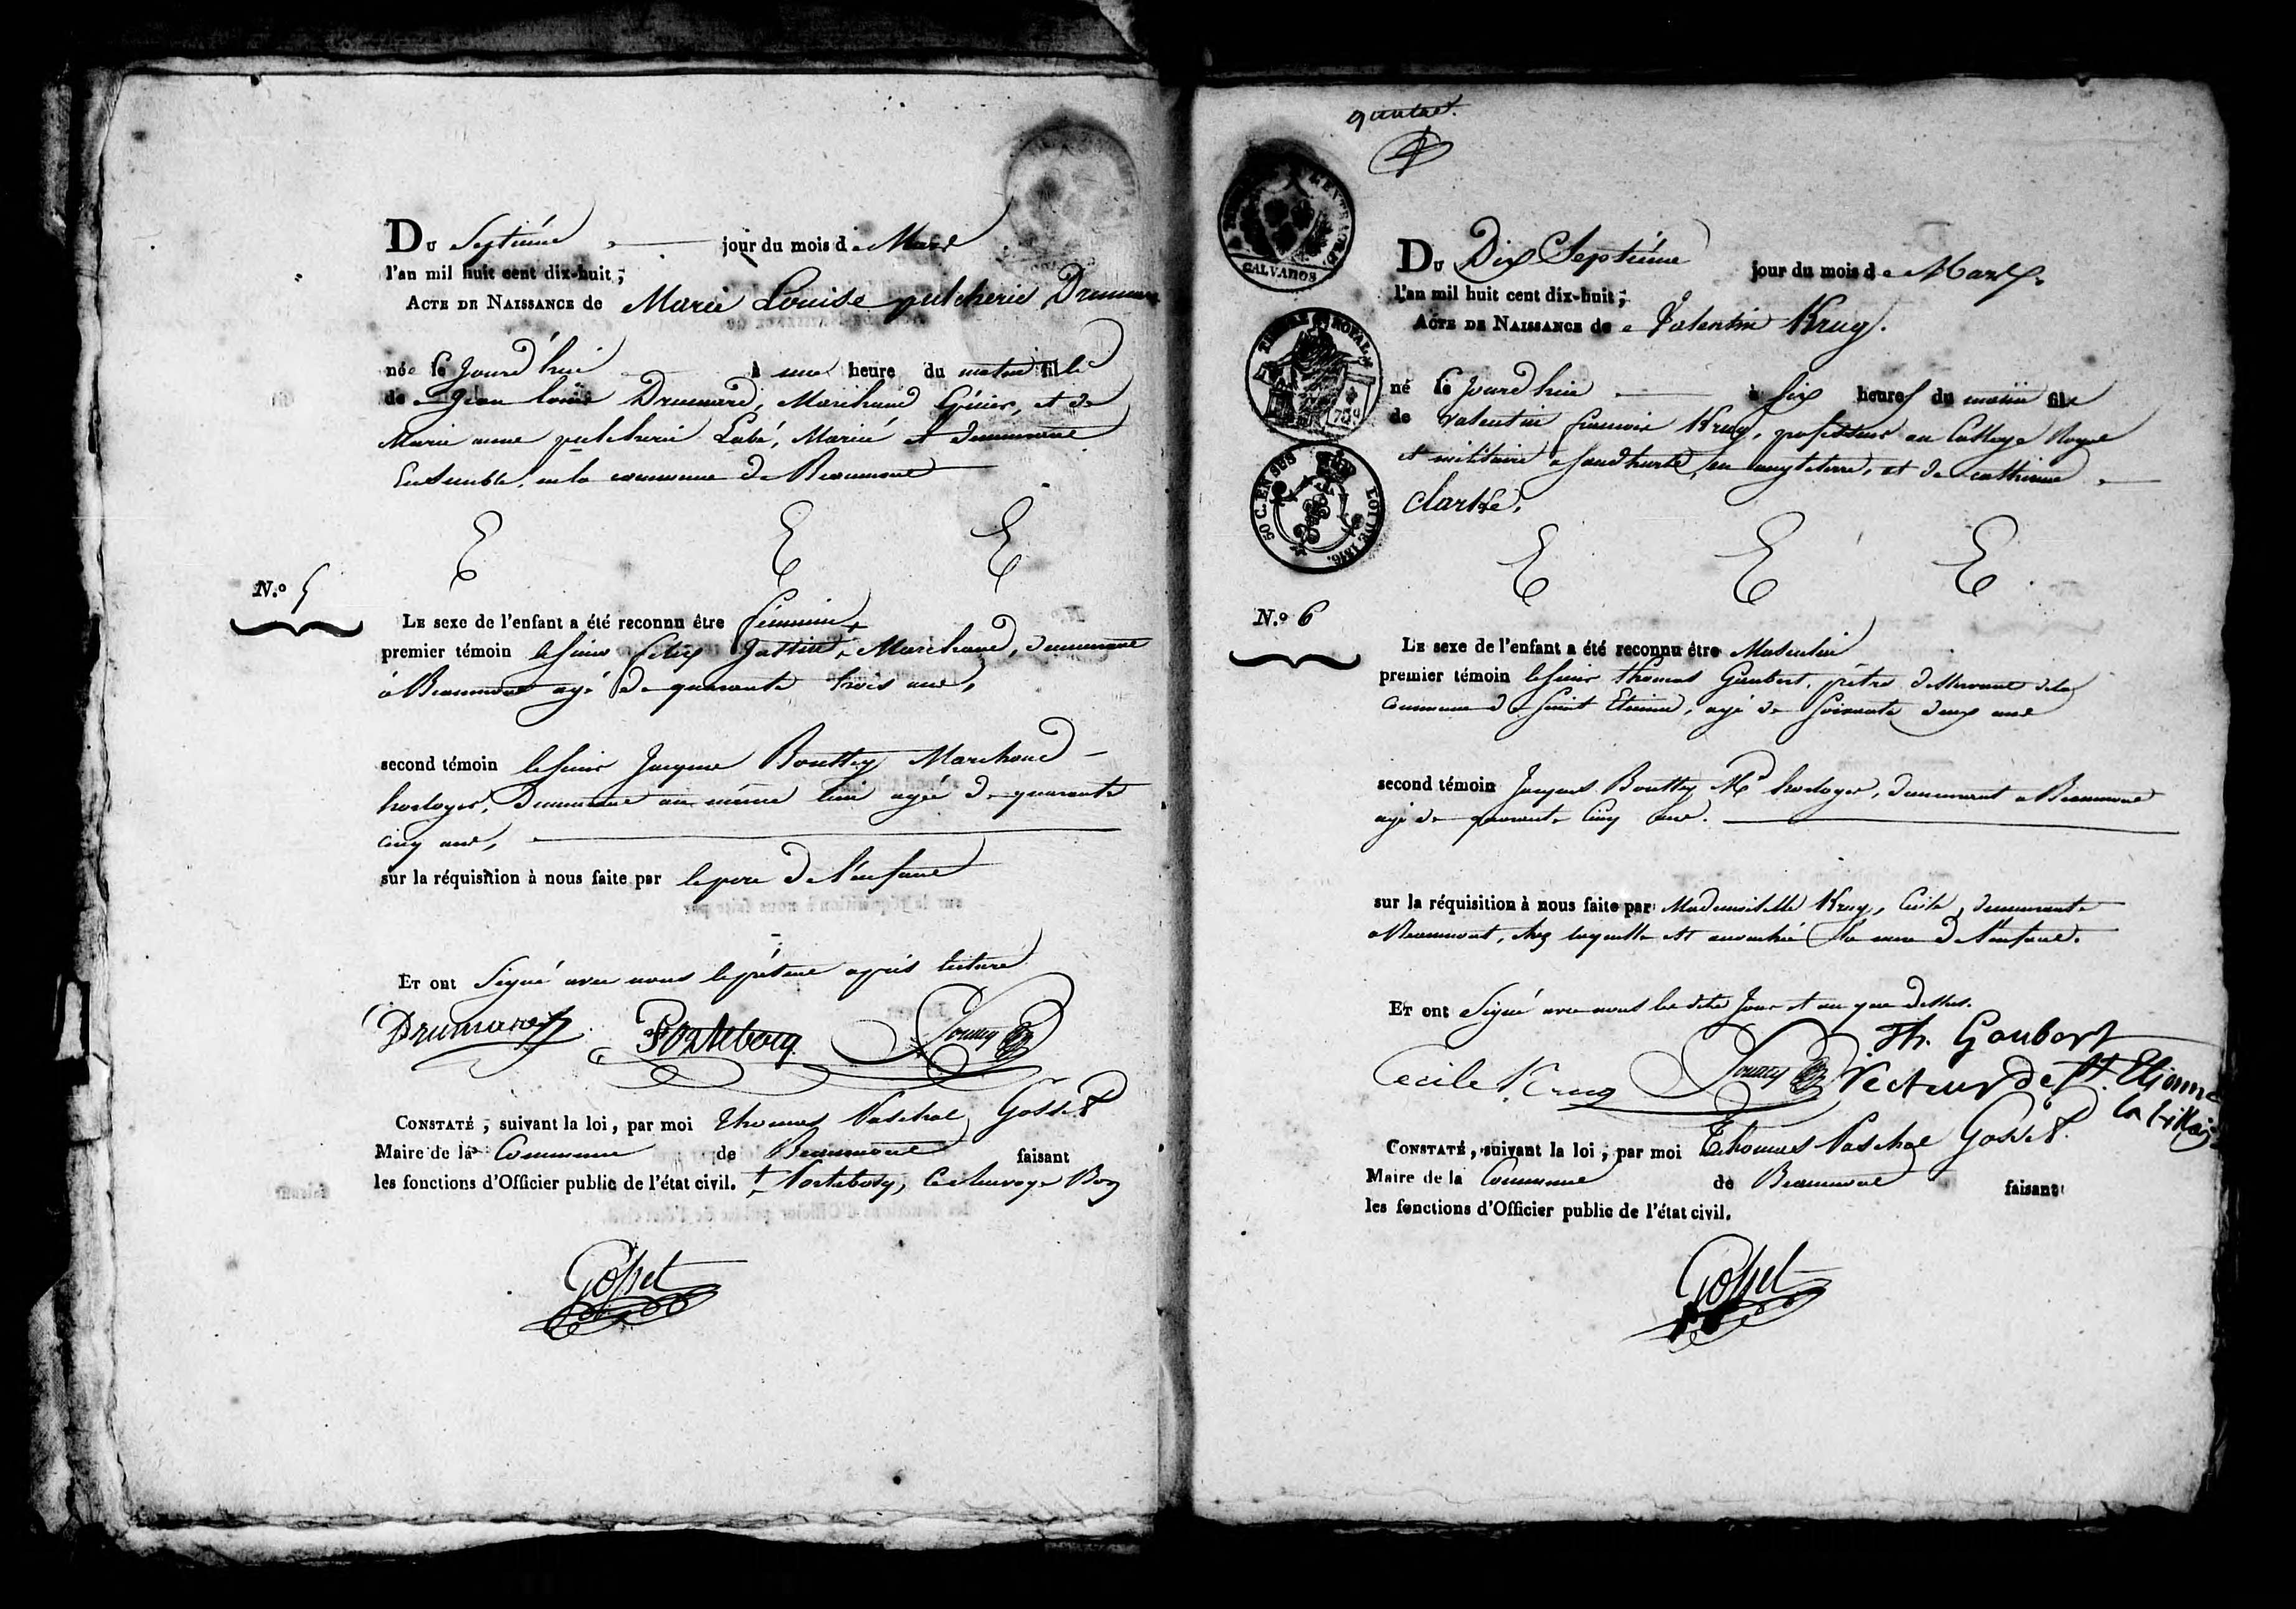 Du Septième jour du mois de Mars
l'an mil huit cent dix-huit;
Acte de Naissance de Marie Louise pulcherie
née ce Jourd'hui à une heure du matin fille
de Jean Louis Drumare, Marchand Epicier, et de
Marie anne pulcherie Labé, Mariés et demeurant
Ensemble, en la commune de Beaumont
N.º 5
Le sexe de l'enfant a été reconnu être féminin
premier témoin le sieur Marchand, demeurant
à Beaumont agé de quarante trois ans,
second témoin le sieur Jacques Bouttey Marchand
horloger, Demeurant au même lieu agé de quarante
cinq ans,
sur la réquisition à nous faite par le père de l'enfant
Et ont Signé avec nous le présent après lecture
Drumare
Constaté, suivant la loi, par moi Thomas Paschal Gosset
Maire de la Commune de Beaumont faisant
les fonctions d'Officier public de l'état civil.
Gosset
CALVADOS
TIMBRE ROYAL
50 C. EN SUS
LOI DE 1816.
Du Dix Septième jour du mois de Mars
l'an mil huit cent dix-huit;
Acte de Naissance de Valentin Krug.
né ce jourd'hui à six heures du matin fils
de Valentin françois Krug, professeur au College Royal
et militaire a sandhurst, en angleterre, et de catherine
Clarke,
N.º 6
Le sexe de l'enfant a été reconnu être Masculin
premier témoin le sieur thomas Gaubert, prêtre desservant de la
Commune de saint Etienne, agé de soixante deux ans
second témoin Jacques Bouttey Md horloger, demeurant a Beaumont
agé de quarante cinq ans.
sur la réquisition à nous faite par Mademoiselle Krug, Cécile, demeurante
a Beaumont, chez laquelle est accouchée la mère de l'enfant.
Et ont Signé avec nous les dits Jour et an que dessus.
Th. Gaubert
Cecile Krug
recteur de St. Etienne
Constaté, suivant la loi, par moi Thomas Paschal Gosset
Maire de la Commune de Beaumont faisant
les fonctions d'Officier public de l'état civil.
Gosset